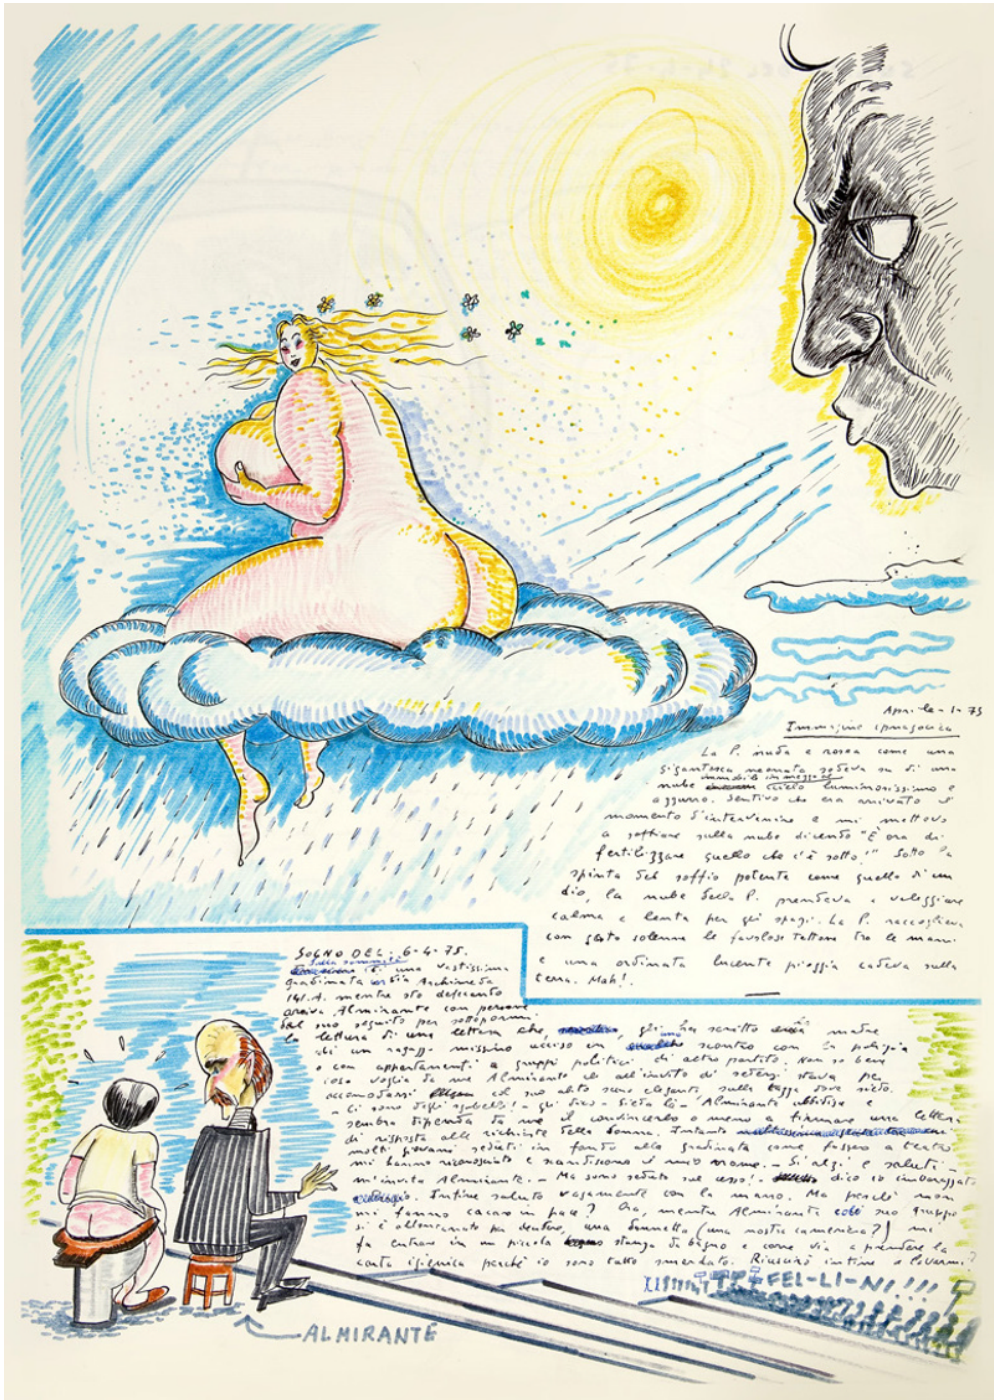 Aprile-1-75
Immagine ipnagogica
La P. nuda e rosea come una
gigantesca neonata sedeva su di una
immobile in mezzo al
nube cielo luminosissimo e
azzurro. Sentivo che era arrivato il
momento d'intervenire e mi mettevo
a soffiare sulla nube dicendo "È ora di
fertilizzare quello che c'è sotto!" Sotto la
spinta del soffio potente come quello di un
dio, la nube della P. prendeva a veleggiare
calma e lenta per gli spazi. La P. raccoglieva
con gesto solenne le favolose tettone tra le mani
e una ordinata lucente pioggia cadeva sulla
terra. Mah!
SOGNO DEL: 6-4-75.
Sulla sommità
di una vastissima
gradinata via Archimede
141.A. mentre sto defecando
arriva Almirante con persone
del suo seguito per sottopormi
la lettura di una lettera che gli ha scritto una madre
di un ragazzo missino ucciso in uno scontro con la polizia
o con appartenenti a gruppi politici di altro partito. Non so bene
cosa voglia da me Almirante che all'invito di sedersi stava per
accomodarsi col suo abito scuro elegante sulla tazza dove siedo.
- Ci sono degli sgabelli! - gli dico - Sieda lì - Almirante ubbidisce e
sembra dipenda da me il convincerlo o meno a firmare una lettera
di risposta alle richieste della donna. Intanto
molti giovani seduti in fondo alla gradinata come fossero a teatro
mi hanno riconosciuto e scandiscono il mio nome. - Si alzi e saluti -
m'invita Almirante. - Ma sono seduto sul cesso! - dico io imbarazzato
Infine saluto vagamente con la mano. Ma perché non
mi fanno cacare in pace? Ora, mentre Almirante col suo gruppo
si è allontanato per dentro, una donnetta (una nostra cameriera?) mi
fa entrare in un piccola stanza da bagno e corre via a prendere la
carta igienica perché io sono tutto smerdato. Riuscirò infine a lavarmi?
FEL-LI-NI!!!
ALMIRANTE